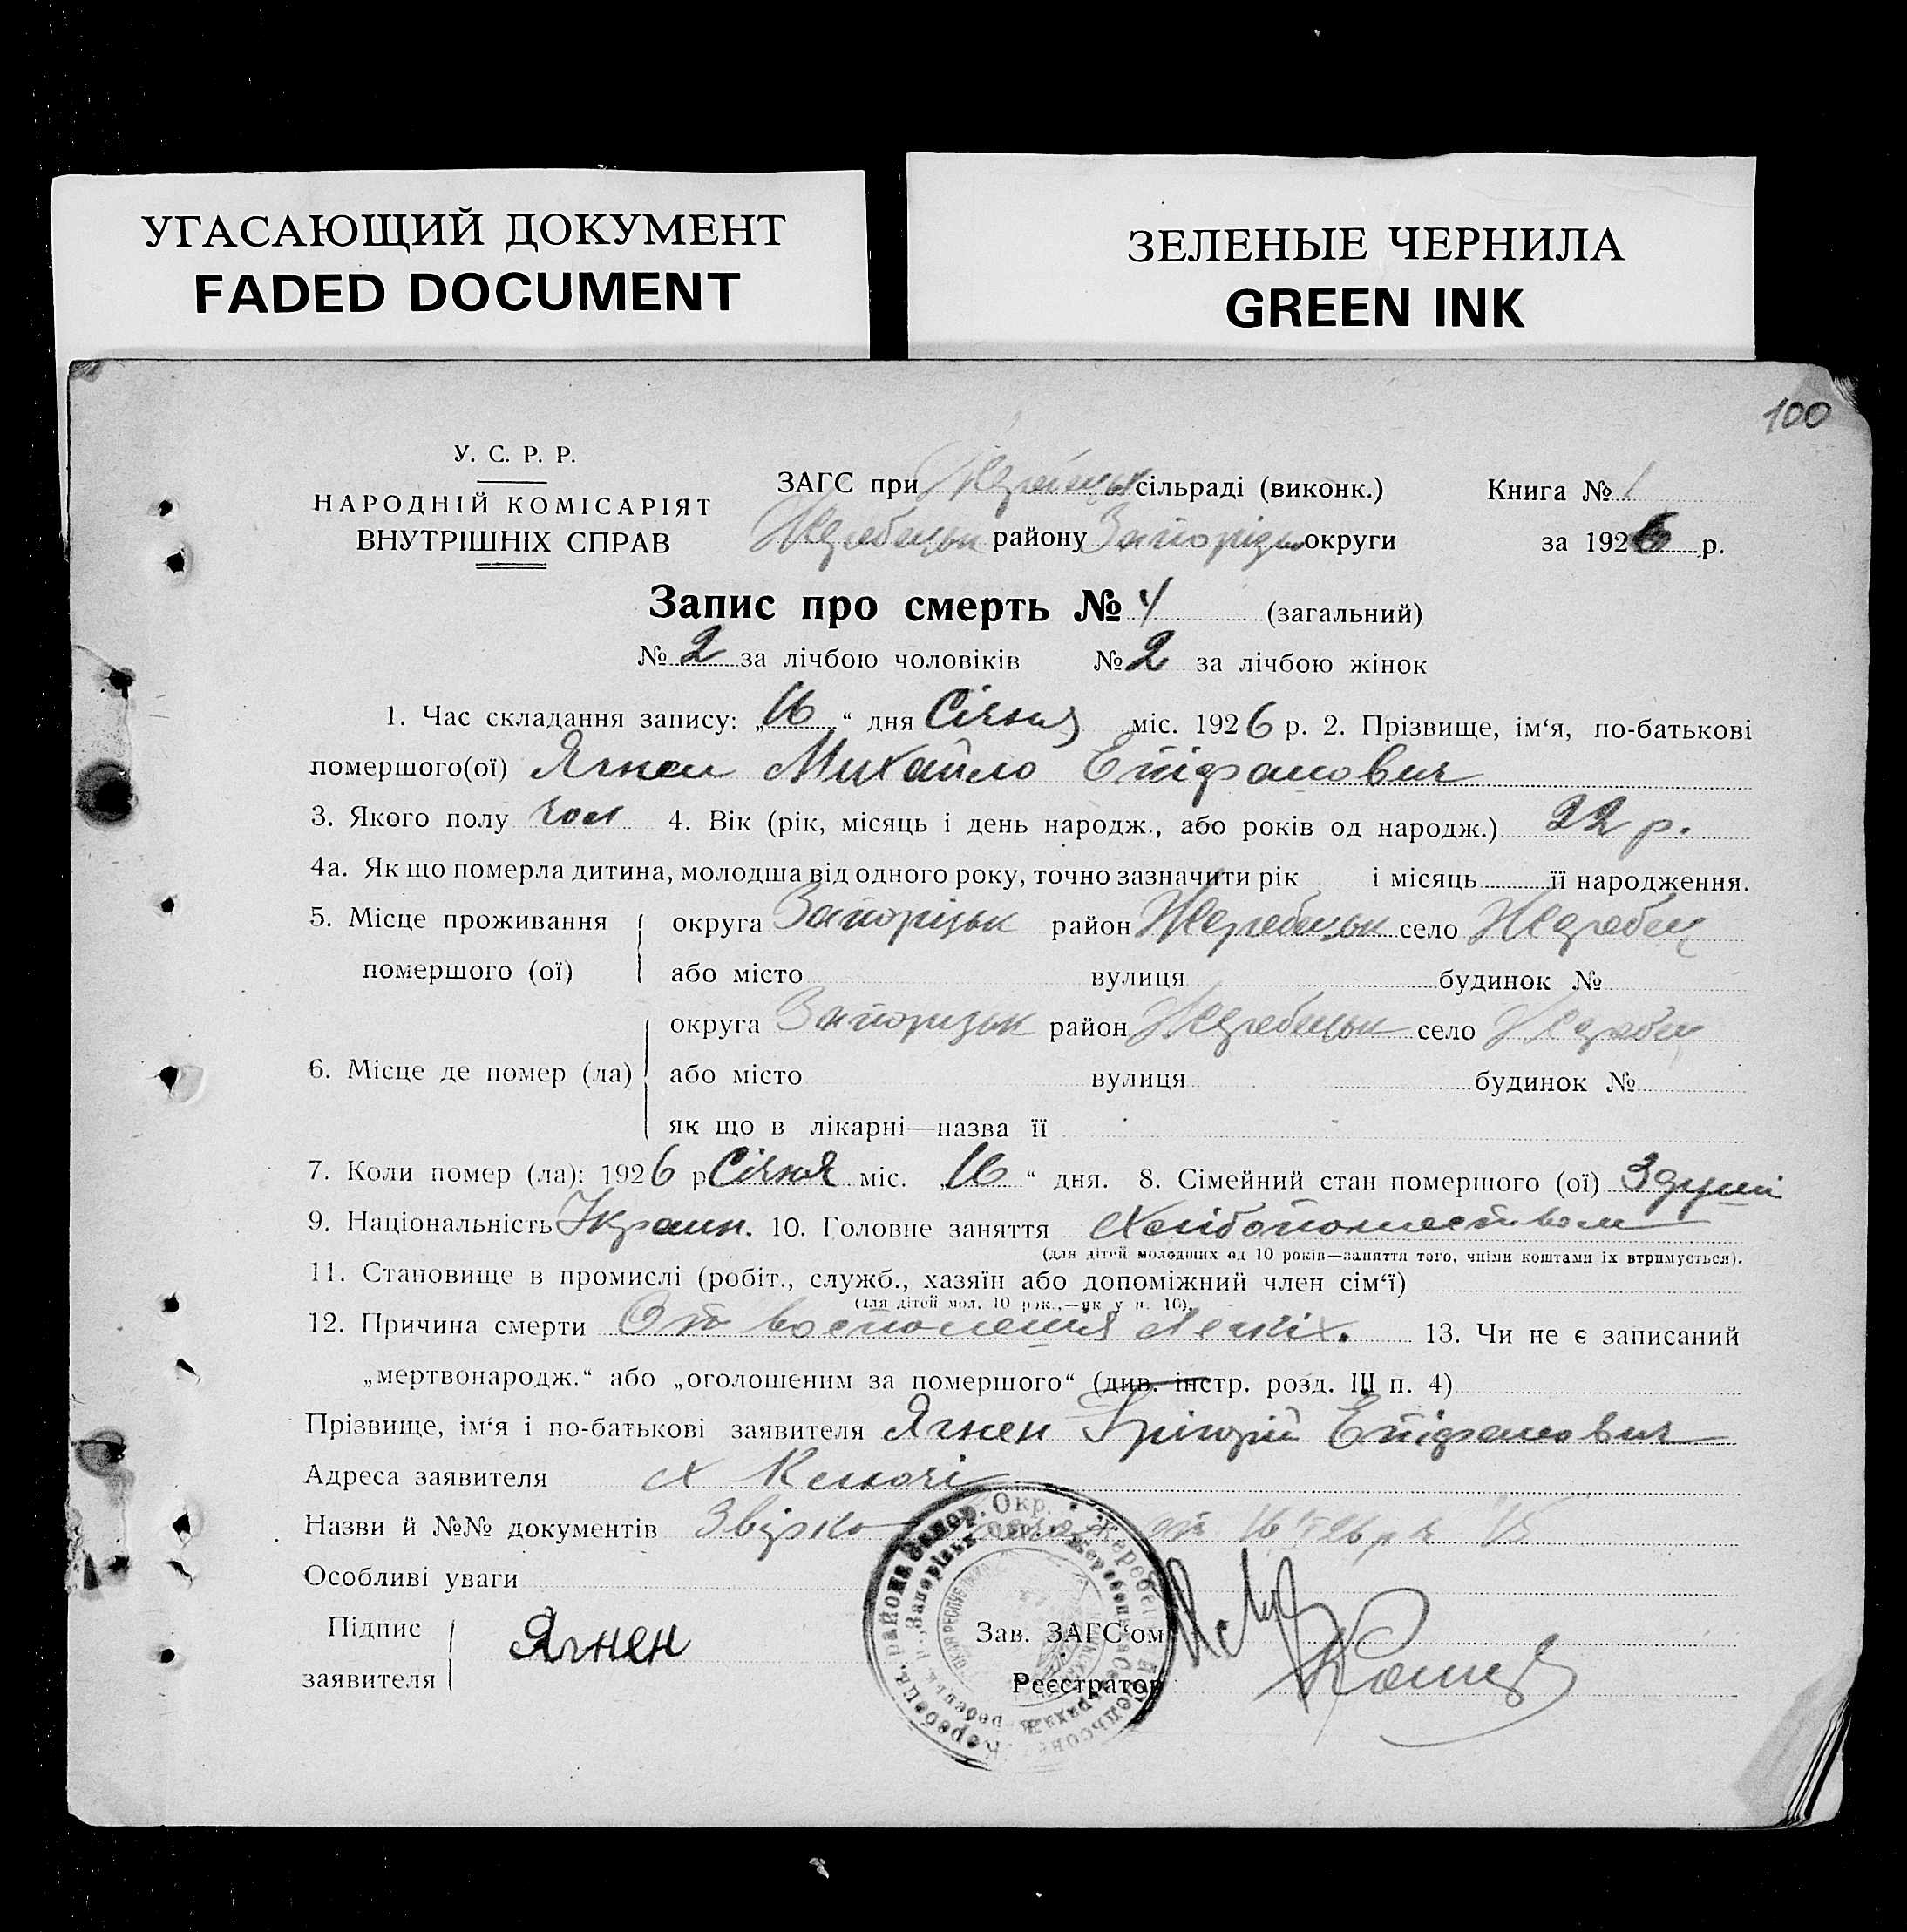 УГАСАЮЩИЙ ДОКУМЕНТ
FADED DOCUMENT
ЗЕЛЕНЫЕ ЧЕРНИЛА
GREEN INK
100
У. С. Р. Р.
НАРОДНІЙ КОМІСАРІЯТ
ВНУТРІШНІХ СПРАВ
ЗАГС при сільраді (виконк.)
Жеребецьк району Запорізьк округи
Книга № 1
за 1926 р.
Запис про смерть № 4 (загальний)
№ 2 за лічбою чоловіків № 2 за лічбою жінок
1. Час складання запису: „16“ дня Січня міс. 1926 р. 2. Прізвище, ім‘я, по-батькові
помершого(ої) Ягнен Михайло Епіфанович
3. Якого полу чол 4. Вік (рік, місяць і день народж., або років од народж.) 22 р.
4а. Як що померла дитина, молодша від одного року, точно зазначити рік і місяць її народження.
5. Місце проживання помершого (ої)
округа Запорізьк район Жеребецьк село Жеребец
або місто вулиця будинок №
6. Місце де помер (ла)
округа Запоризьк район Жеребецьк село Жеребец
або місто вулиця будинок №
як що в лікарні—назва її
7. Коли помер (ла): 1926 р Січня міс. „16“ дня. 8. Сімейний стан помершого (ої) 3 души
9. Національність Украин. 10. Головне заняття
(для дітей молодших од 10 років—заняття того, чиїми коштами їх втримується).
11. Становище в промислі (робіт., служб., хазяїн або допоміжний член сім‘ї)
(для дітей мол. 10 рок.,—як у п. 10).
12. Причина смерти От воспомения легких. 13. Чи не є записаний
„мертвонародж.“ або „оголошеним за помершого“ (див. інстр. розд. III п. 4)
Прізвище, ім‘я і по-батькові заявителя Ягнен Григорій Епіфанович
Адреса заявителя х Ключі
Назви й №№ документів
Особливі уваги
Підпис заявителя Ягнен
Зав. ЗАГС‘ом
Реєстратор